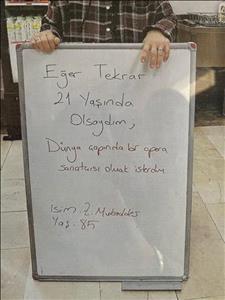 Eğer Tekrar
21 Yaşında
Olsaydım,
Dünya çapında bir opera
sanatçısı olmak isterdim
isim : Z. Mukaddes
Yaş : 85